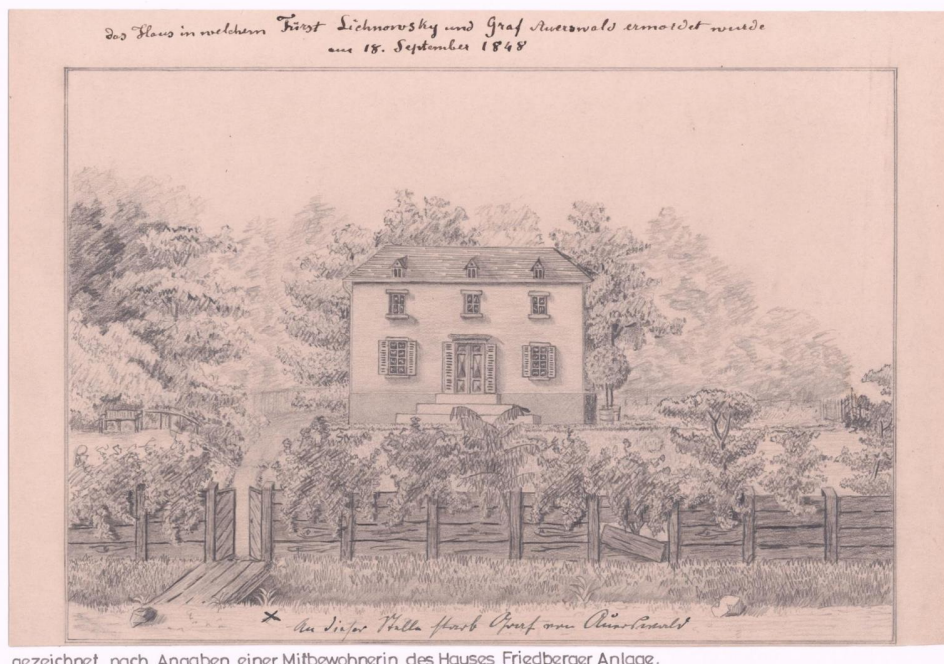 das Haus in welchem Fürst Lichnowsky und Graf Auerswald ermordet wurde
am 18. September 1848
An dieser Stelle starb Graf von Auerswald
gezeichnet nach Angaben einer Mitbewohnerin des Hauses Friedberger Anlage.